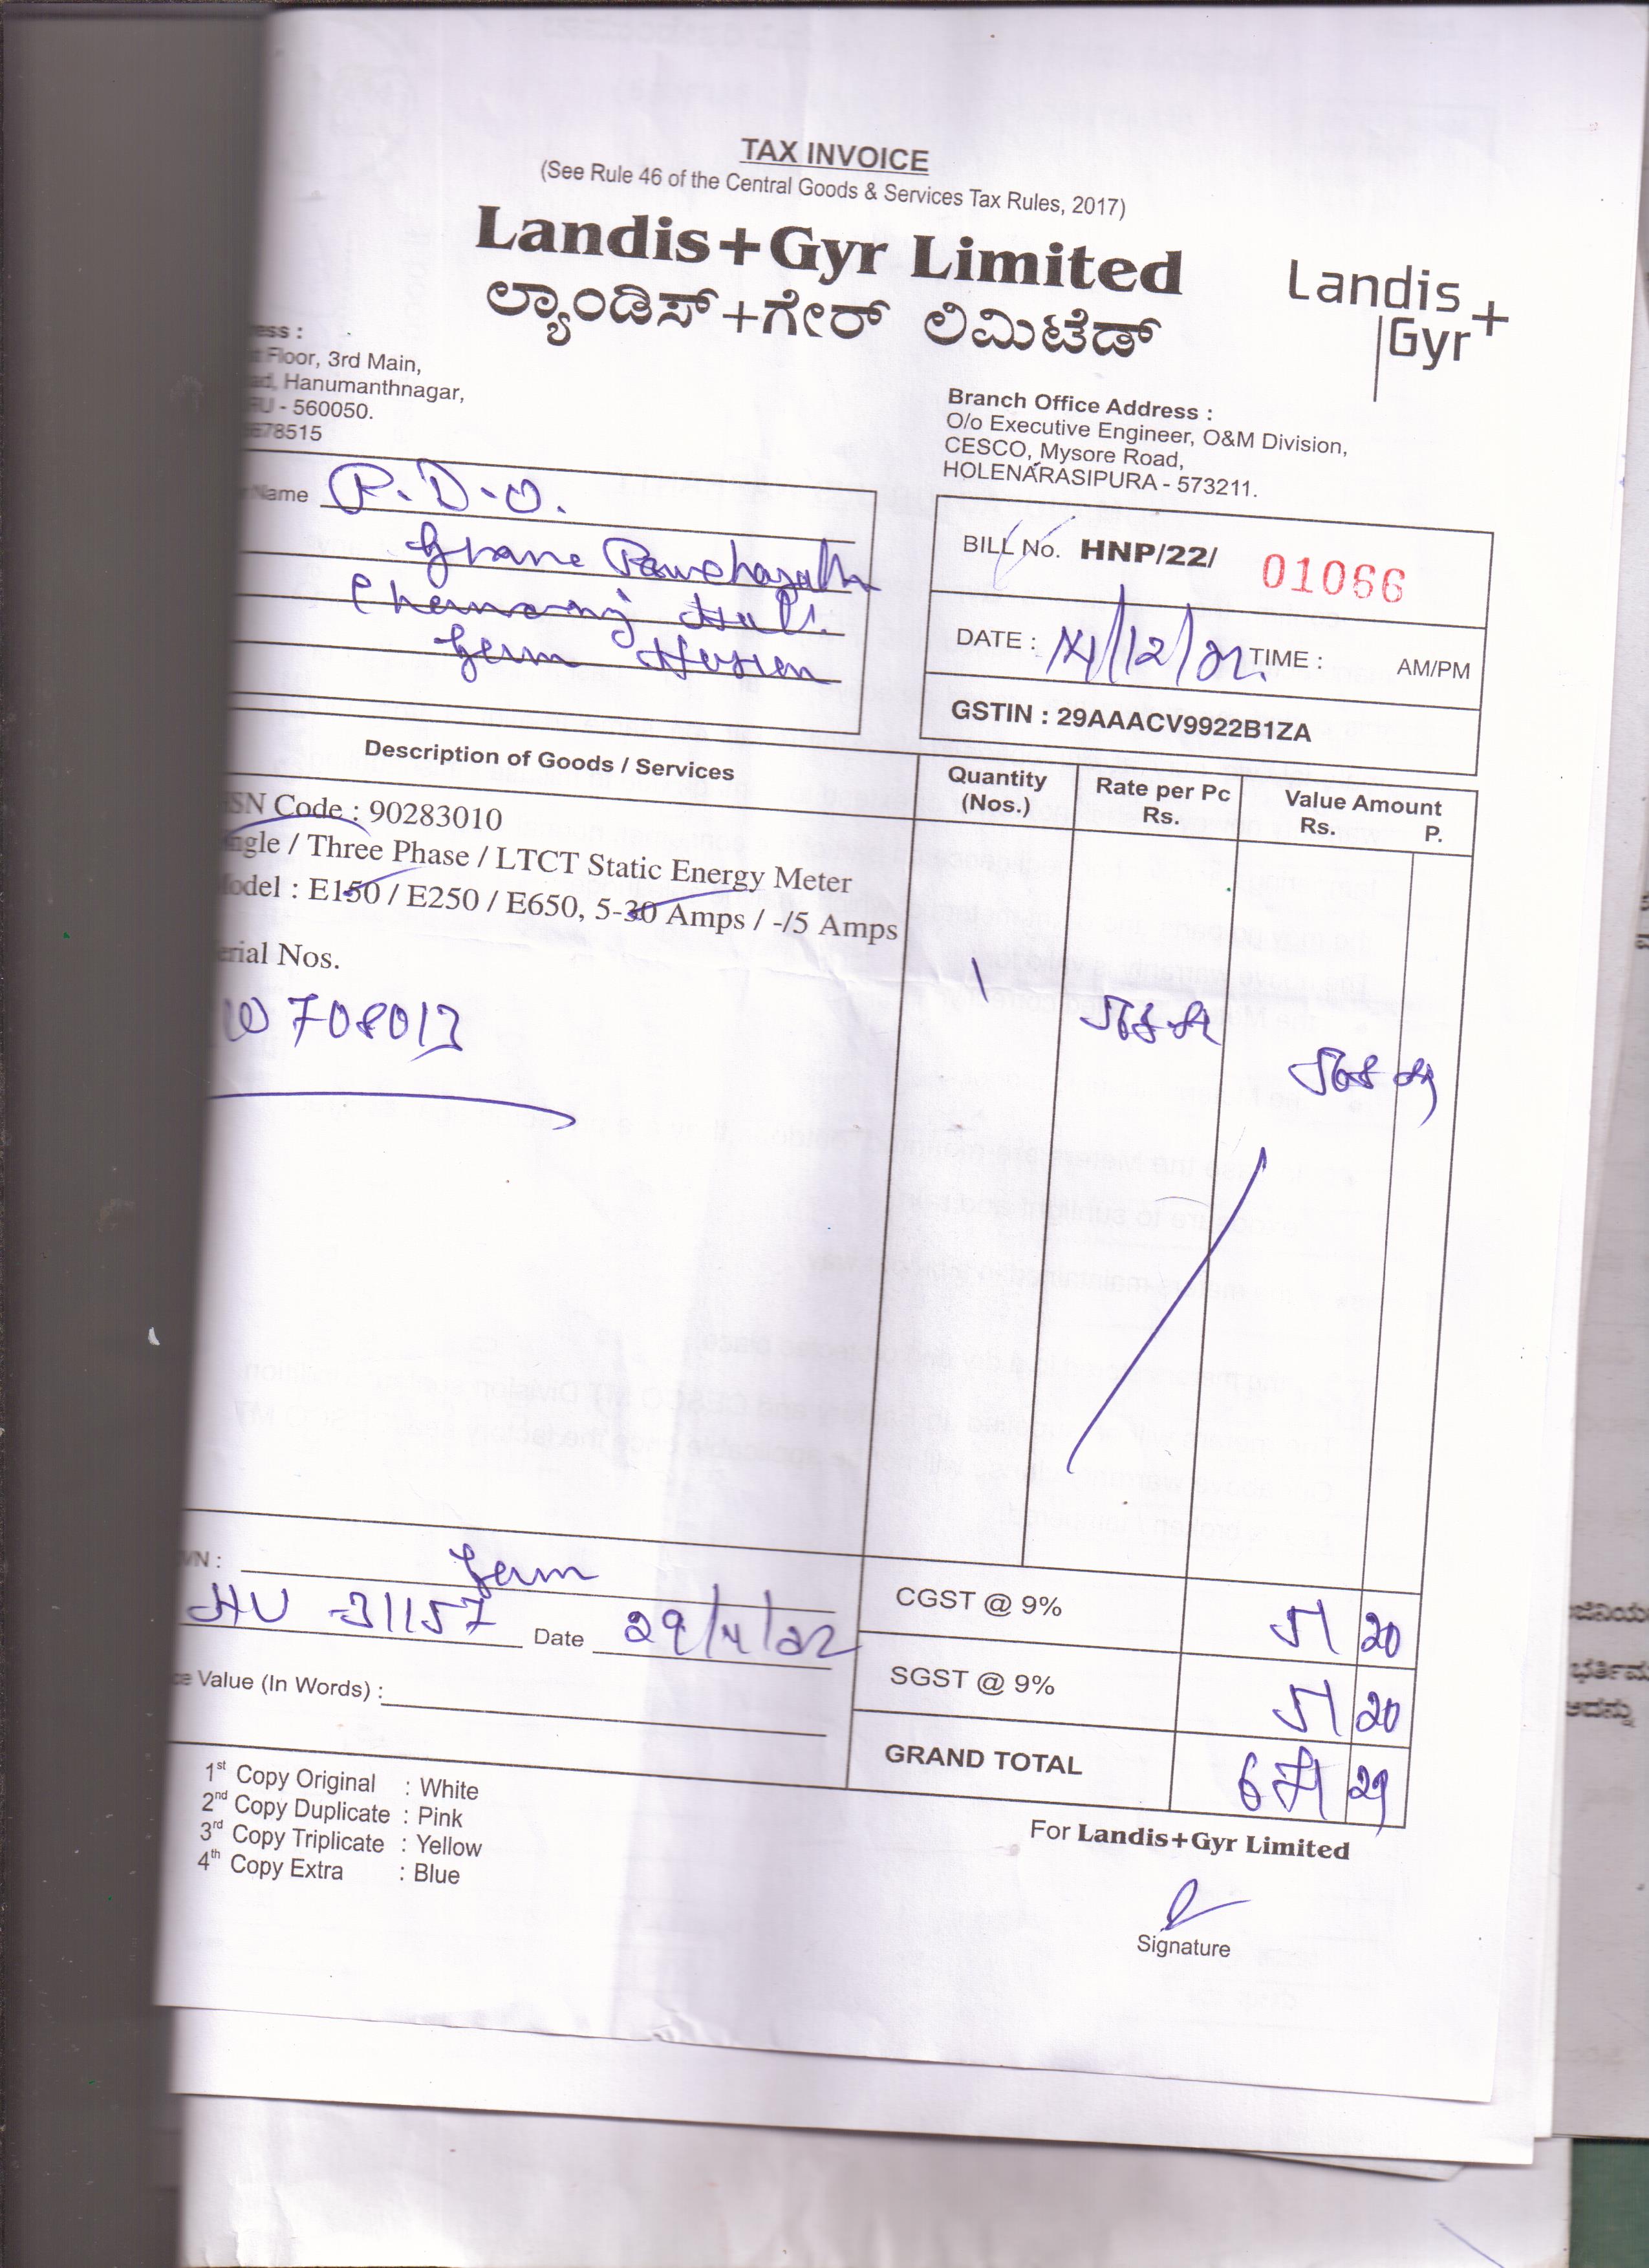 TAX INVOICE
(See Rule 46 of the Central Goods & Services Tax Rules, 2017)
Landis+Gyr Limited
ಲ್ಯಾಂಡಿಸ್+ಗೇರ್ ಲಿಮಿಟೆಡ್
Landis+
Gyr
ess :
t Floor, 3rd Main,
ad, Hanumanthnagar,
RU - 560050.
678515
Branch Office Address :
O/o Executive Engineer, O&M Division,
CESCO, Mysore Road,
HOLENARASIPURA - 573211.
Name P.D.O.
BILL No. HNP/22/ 01066
DATE : /12/22 TIME : AM/PM
GSTIN : 29AAACV9922B1ZA
Description of Goods / Services
Quantity (Nos.)
Rate per Pc Rs.
Value Amount Rs. P.
SN Code : 90283010
ngle / Three Phase / LTCT Static Energy Meter
odel : E150 / E250 / E650, 5-30 Amps / -/5 Amps
erial Nos.
708013
1
568
568
WN :
HU 31157 Date 29/11/22
ce Value (In Words) :
CGST @ 9% 51 20
SGST @ 9% 51 20
GRAND TOTAL 671 29
1st Copy Original : White
2nd Copy Duplicate : Pink
3rd Copy Triplicate : Yellow
4th Copy Extra : Blue
For Landis+Gyr Limited
Signature